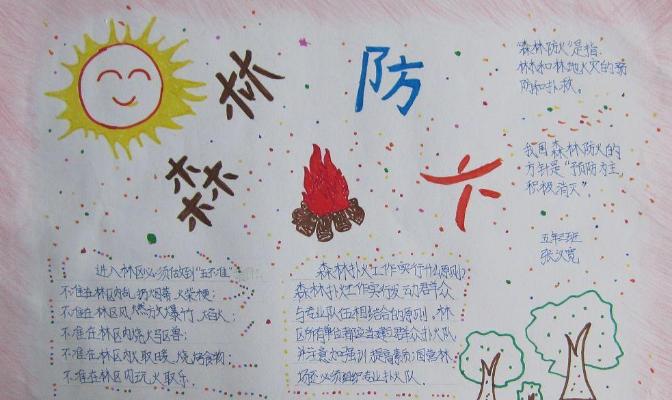 森
林
防
火
"森林防火"是指:
林和林地火灾的预
防和扑救。
我国森林防火的
方针是"预防为主,
积极消灭"
五年三班
进入林区必须做到"五不准"
不准在林区内乱扔烟蒂、火柴梗;
不准在林区
不准在林区内烧火
不准在林区内取暖、烧烤食物;
不准在林区内玩火取乐。
森林扑火工作实行什么原则?
森林扑火工作实行发动群众
与专业队伍相结合的原则,林
区所有单位都应当建立群众扑火队
并注意加强训 提高素质;国营林
场还必须组织专业扑火队。